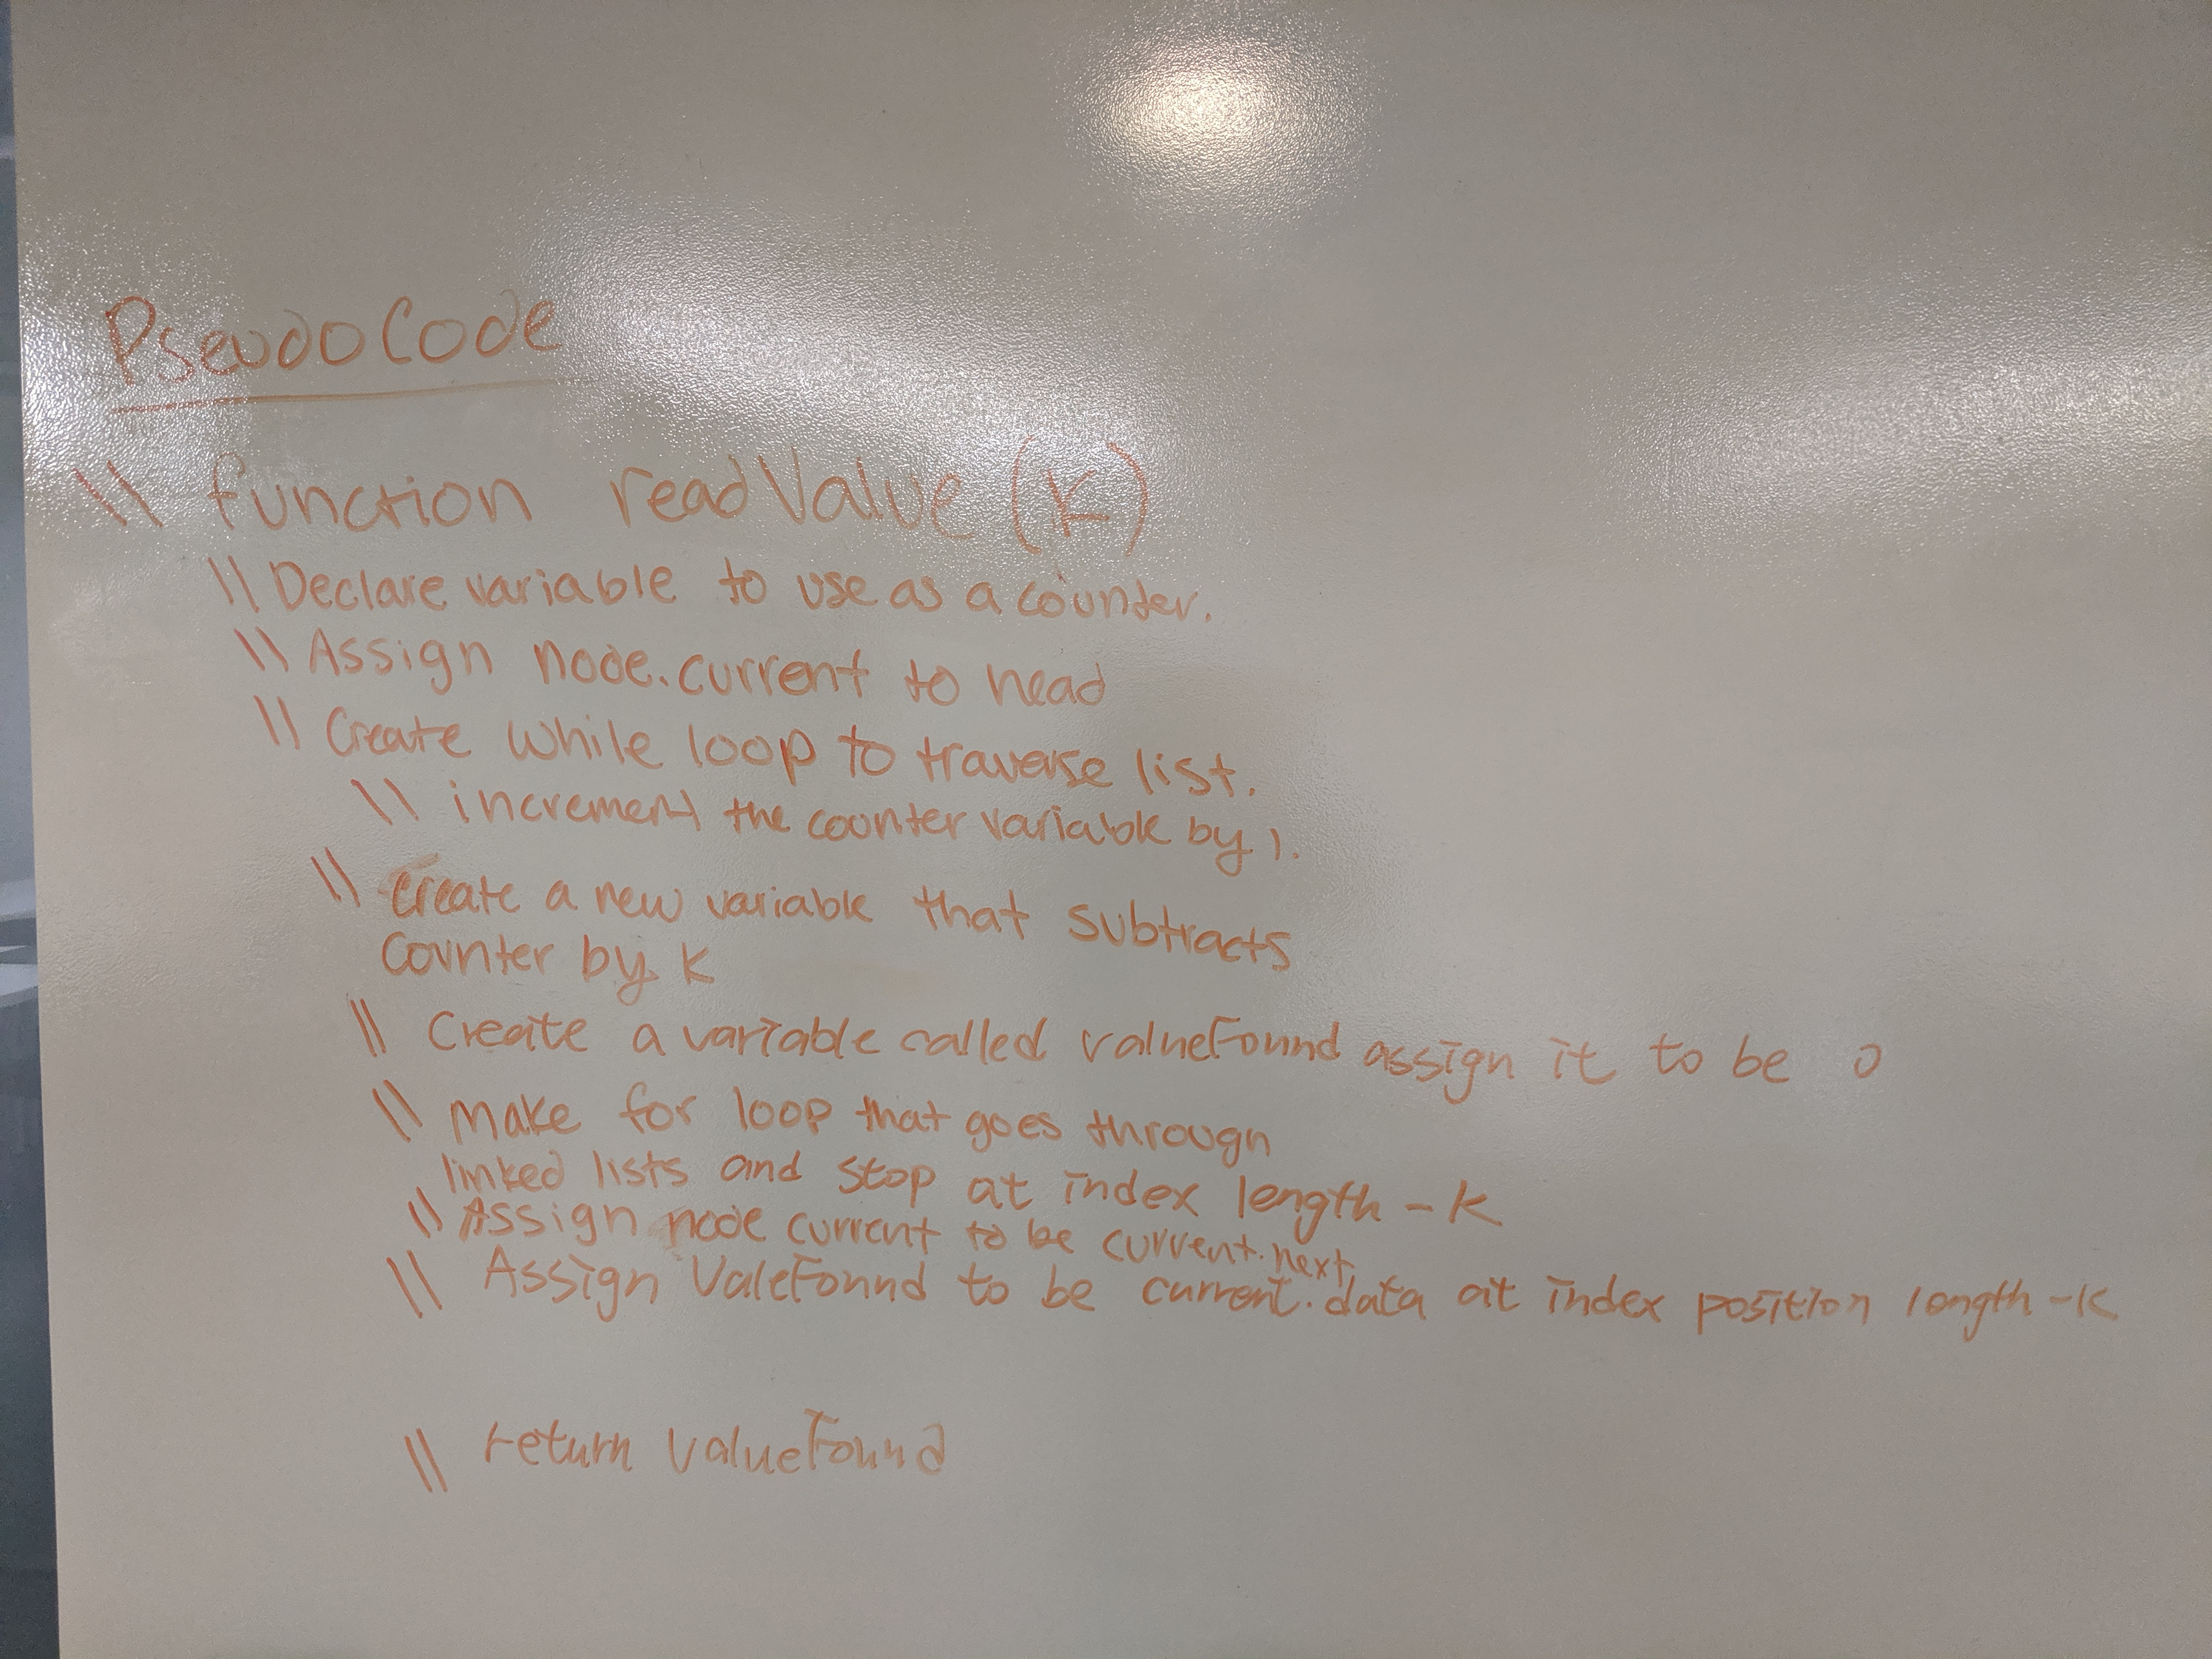 PseudoCode
\\ function readValue (K)
\\ Declare variable to use as a counter.
\\ Assign node.current to head
\\ Create while loop to traverse list.
\\ increment the counter variable by 1.
\\ Create a new variable that subtracts
counter by K
\\ Create a variable called valueFound assign it to be 0
\\ Make for loop that goes through
linked lists and stop at index length - K
\\ Assign node current to be current.next
\\ Assign ValeFound to be current.data at index position length - K
\\ return valueFound